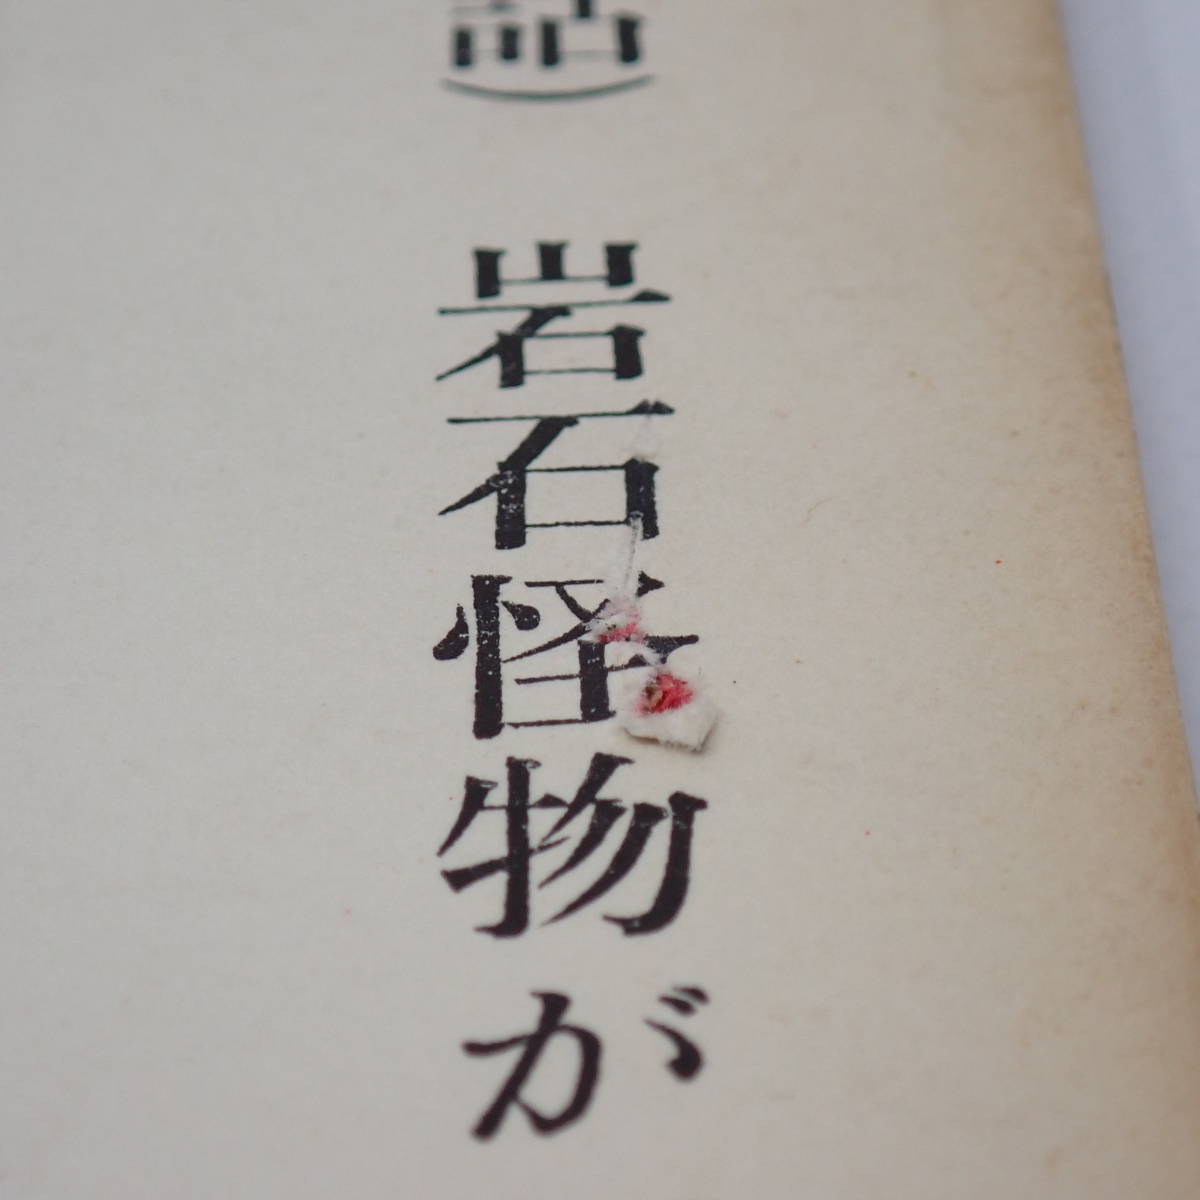 話）岩石怪物が